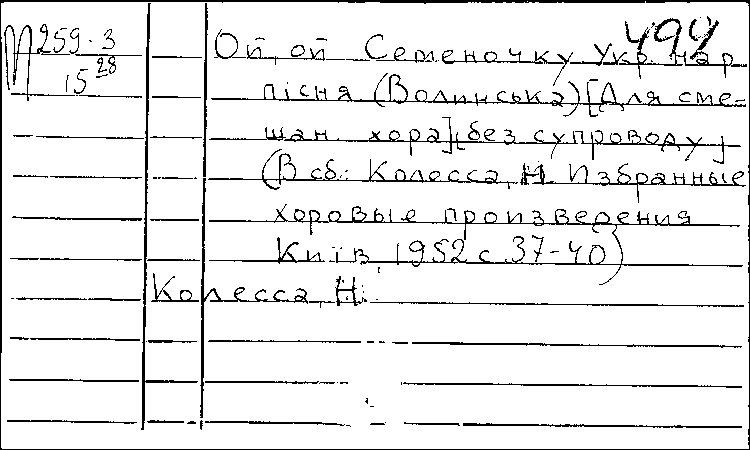 499
М 259-3
15 28
Ой, ой Семеночку Укр нар
пісня (Волинська) [Для сме-
шан. хора] [без супроводу]
(В сб.: Колесса, Н. Избранные
хоровые произведения
Київ, 1952 с. 37-40)
Колесса, Н.